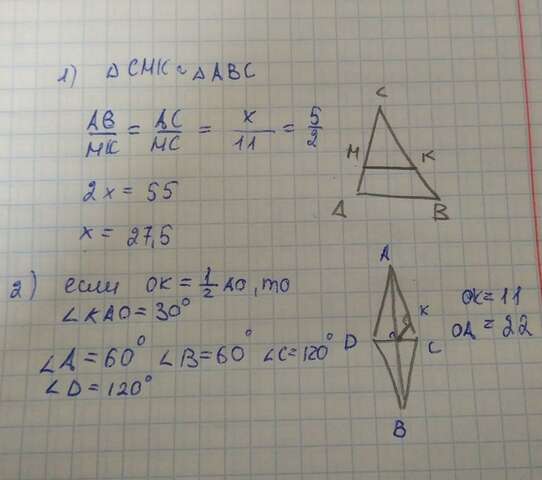 1) Δ CMK ~ Δ ABC
AB/MK = AC/MC = x/11 = 5/2
2x = 55
x = 27,5
C
M
K
A
B
2) если OK = 1/2 AO, то
∠KAO = 30°
∠A = 60° ∠B = 60° ∠C = 120°
∠D = 120°
A
K
D
O
C
B
OK = 11
OA = 22